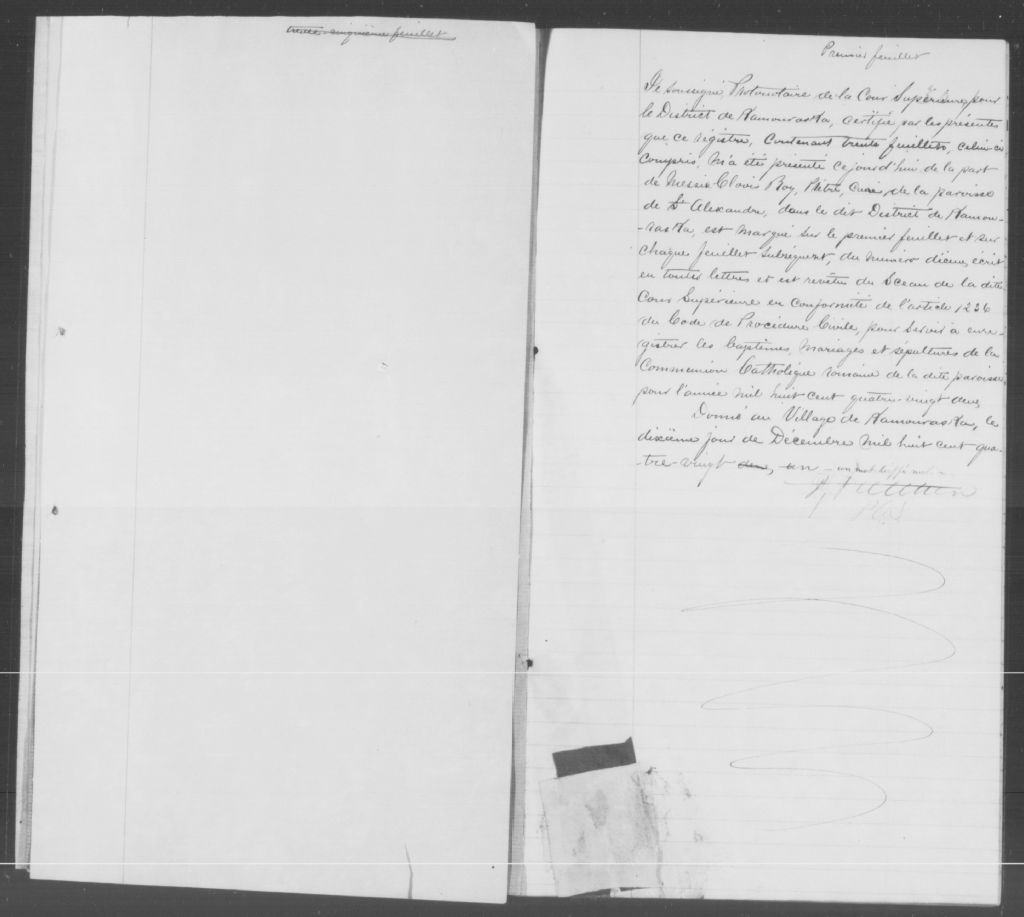 trente-cinquième feuillet
Premier feuillet
Je soussigné, Protonotaire de la Cour Supérieure, pour
le District de Kamouraska, certifie par les présentes
que ce registre, contenant trente feuillets, celui-ci
compris, m'a été présenté ce jourd'hui de la part
de Messire Clovis Roy, Prêtre, curé, de la paroisse
de St Alexandre, dans le dit District de Kamou-
-raska, est marqué sur le premier feuillet et sur
chaque feuillet subséquent, du numéro d'iceux, écrit
en toutes lettres et est revêtu du Sceau de la dite
Cour Supérieure en conformité de l'article 1236
du Code de Procédure Civile, pour servir à enre-
gistrer les baptêmes, mariages et sépultures de la
Communion Catholique romaine de la dite paroisse,
pour l'année mil huit cent quatre-vingt deux,
Donné au Village de Kamouraska, le
dixième jour de Décembre mil huit cent qua-
-tre-vingt deux, un - un mot biffé nul -